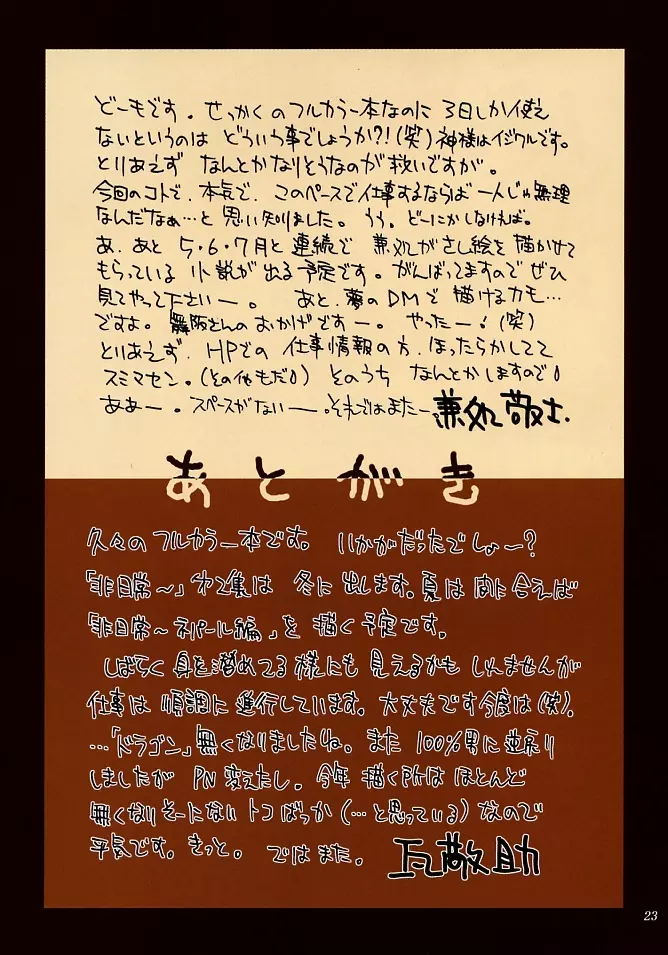 どーもです。せっかくのフルカラー本なのに 3日しか使え
ないというのは どういう事でしょうか?!(笑)神様はイジワルです。
とりあえず なんとかなりそうなのが救いですが。
今回のコトで、本気で、このペースで仕事するならば一人じゃ無理
なんだなぁ…と思い知りました。うう。どーにかしなければ。
あ、あと 5・6・7月と連続で 兼処がさし絵を描かせて
もらっている 小説が出る予定です。がんばってますので ぜひ
見てやって下さいー。 あと、夢のDMで描けるカモ…
ですよ。舞阪さんのおかげですー。 やったー!(笑)
とりあえず、HPでの 仕事情報の方、ほったらかしてて
スミマセン。(その他もだ!)そのうち なんとかしますので!
ああー。スペースがないー。それではまたー。兼処敬士.
あとがき
久々のフルカラー本です。 いかがだったでしょー?
「非日常〜」第2集は 冬に出します。夏は間に合えば
「非日常〜ネパール編」を描く予定です。
しばらく身を潜めてる様にも見えるかもしんませんが
仕事は順調に進行しています。大丈夫です今度は(笑)。
…「ドラゴン」無くなりましたね。また100%男に逆戻り
しましたが PN変えたし。今年描く所は ほとんど
無くなりそーにないトコばっか(…と思っている)なので
平気です。きっと。 ではまた。 瓦敬助
23